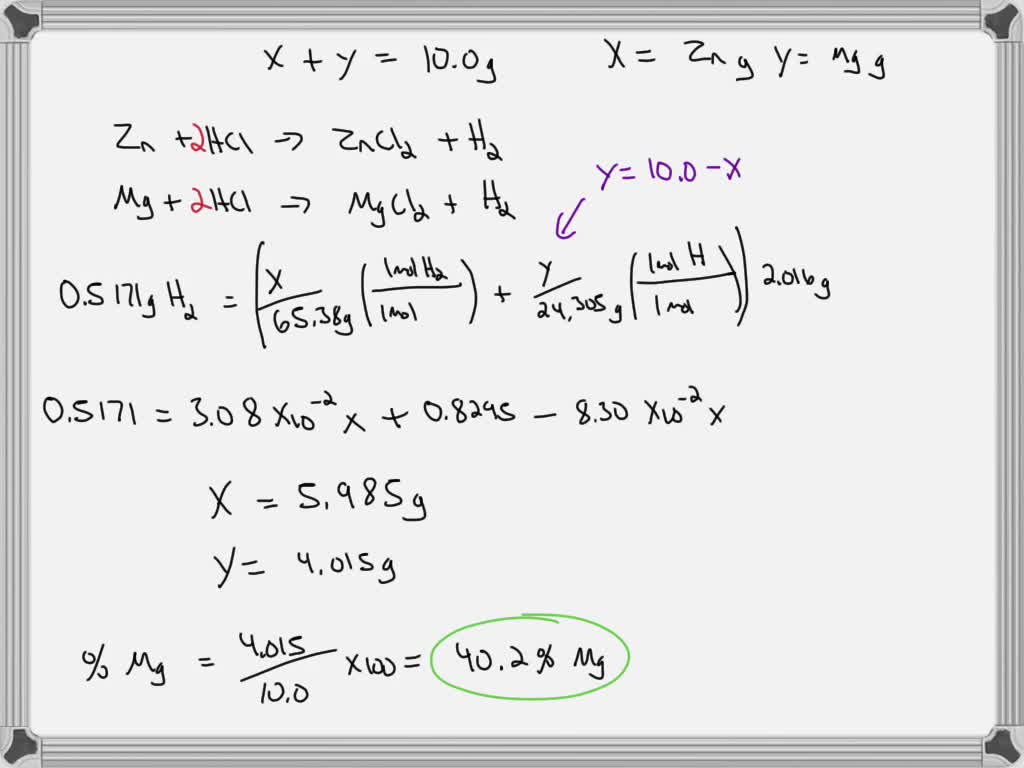 X + y = 10.0g X = Zn g y = Mg g
Zn + 2HCl → ZnCl₂ + H₂
y = 10.0 - X
Mg + 2HCl → MgCl₂ + H₂
0.5171g H₂ = (X/65.38g (1mol H₂/1mol) + y/24.305g (1mol H/1mol)) 2.016g
0.5171 = 3.08 x10⁻² x + 0.8295 - 8.30 x10⁻² x
X = 5.985g
y = 4.015g
% Mg = 4.015/10.0 x100 = 40.2% Mg